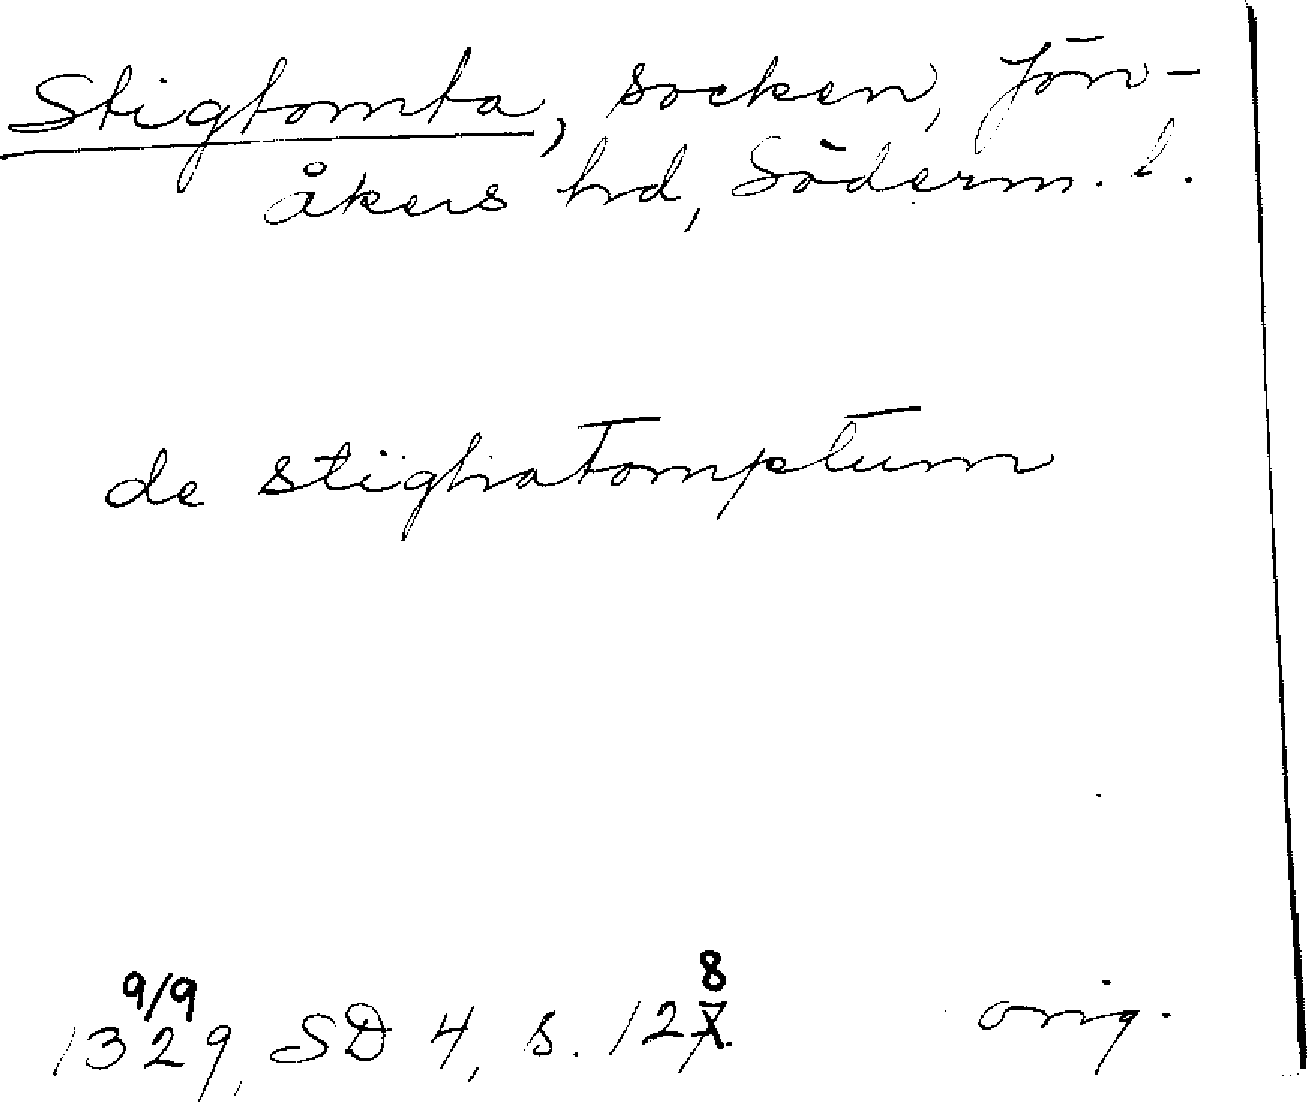 Stigtomta, socken, Jön-
åkers hd, Söderm. l.
de stighatomptum
9/9 8
1329, SD 4, s. 127 orig.